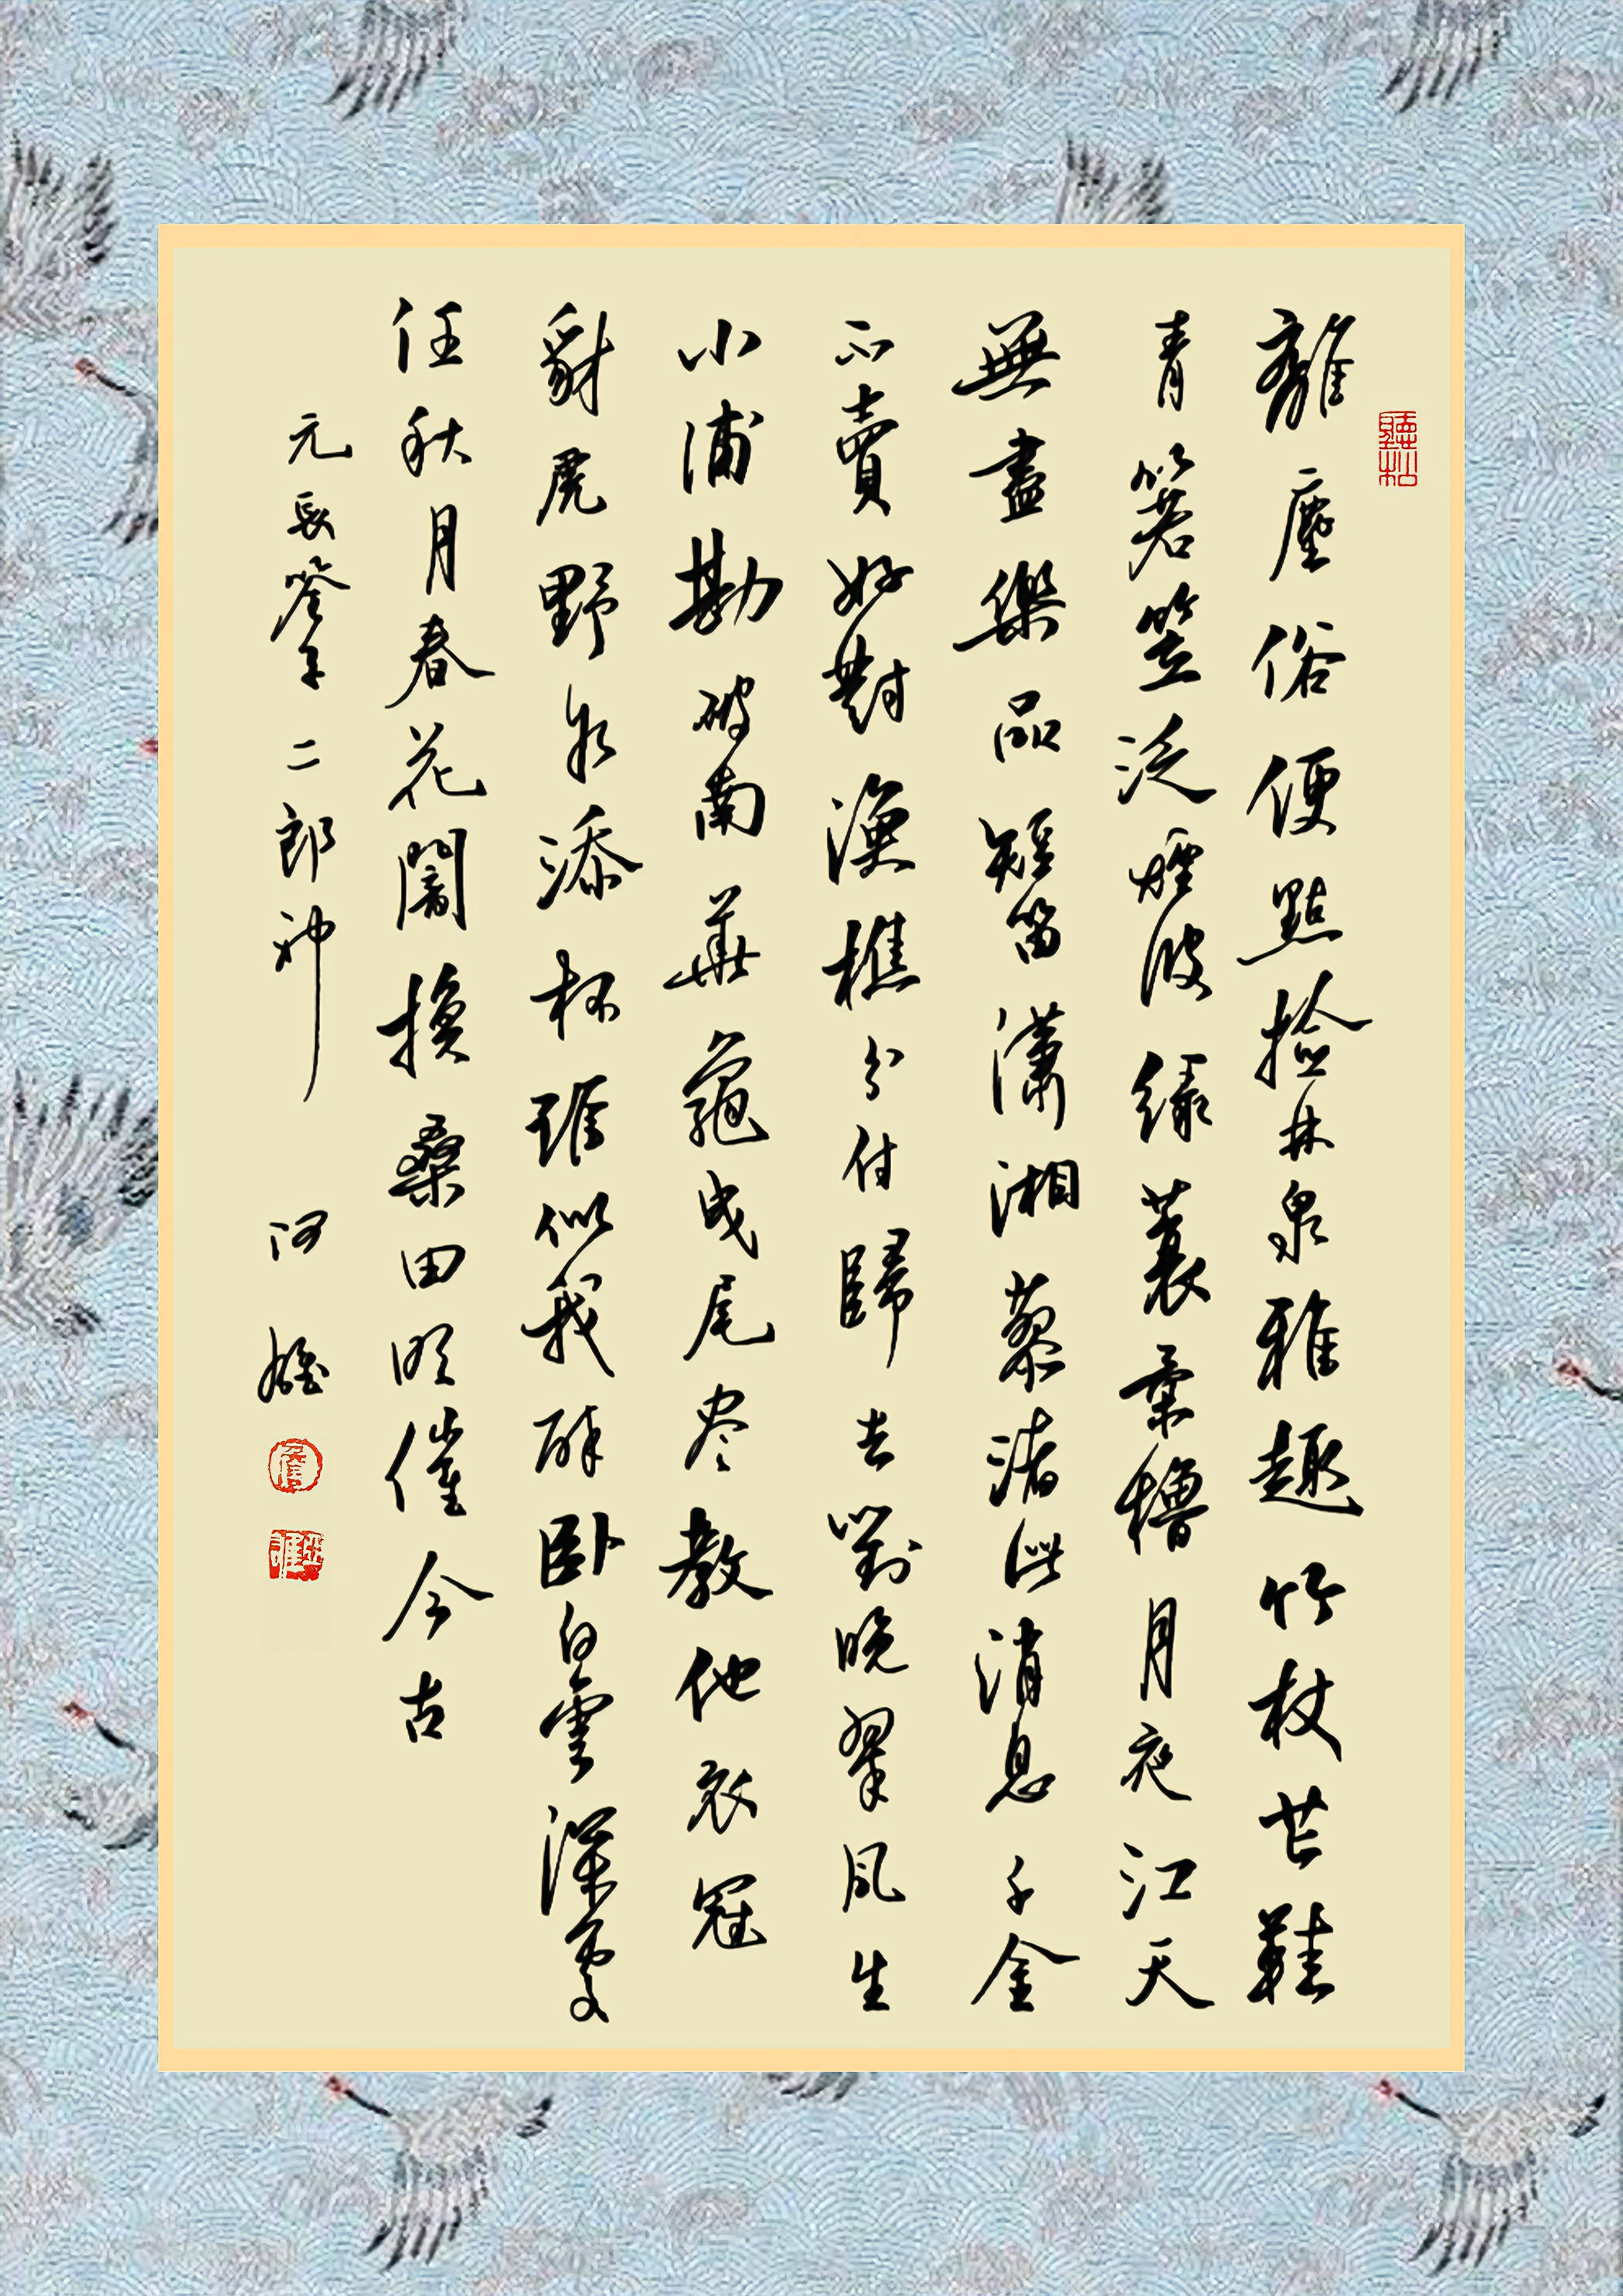 聽松
離塵俗便點撿林泉雅趣竹杖芒鞋
青箬笠泛煙波綠蓑柔櫓月夜江天
無盡樂品短笛瀟湘蓼渚此消息千金
不賣好對漁樵分付歸去對晚翠風生
小浦勘破南華龜曳尾尽教他衣冠
豺虎野水添杯誰似我醉卧白雲深處
任秋月春花闇換桑田催今古
元長筌子二郎神 河